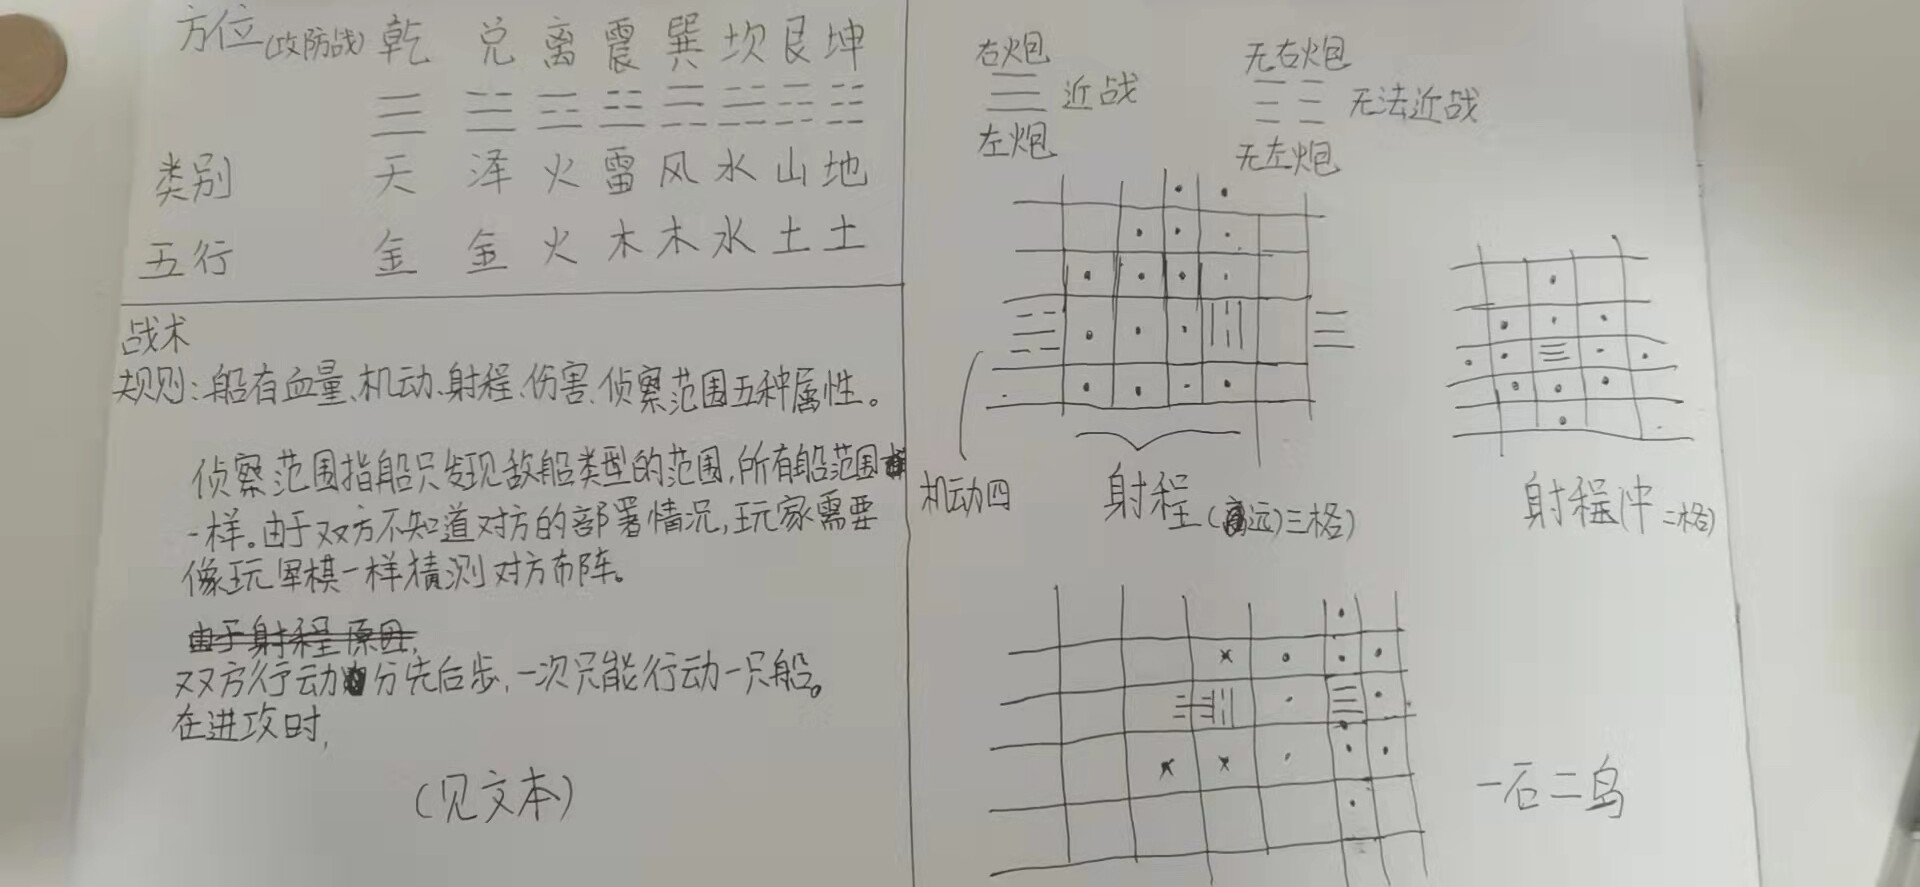 方位(攻防战) 乾 兑 离 震 巽 坎 艮 坤
☰ ☱ ☲ ☳ ☴ ☵ ☶ ☷
类别 天 泽 火 雷 风 水 山 地
五行 金 金 火 木 木 水 土 土
战术
规则:船有血量、机动、射程、伤害、侦察范围五种属性。
侦察范围指船只发现敌船类型的范围,所有船范围
一样。由于双方不知道对方的部署情况,玩家需要
像玩军棋一样猜测对方布阵。
由于射程原因,
双方行动分先后步,一次只能行动一只船。
在进攻时,
(见文本)
右炮
近战
左炮
无右炮
无法近战
无左炮
机动四
射程(远)三格)
射程(中二格)
一石二鸟